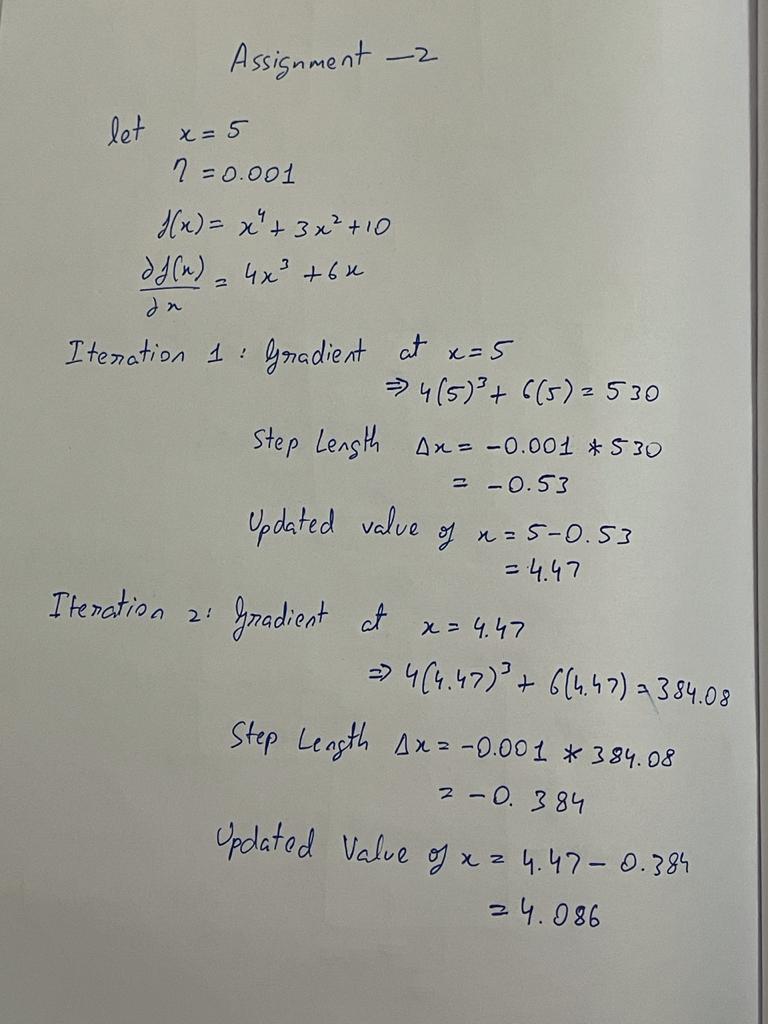 Assignment -2
let x = 5
η = 0.001
f(x) = x⁴ + 3x² + 10
∂f(x)/∂x = 4x³ + 6x
Iteration 1 : Gradient at x = 5
⇒ 4(5)³ + 6(5) = 530
Step Length Δx = -0.001 * 530
= -0.53
Updated value of x = 5 - 0.53
= 4.47
Iteration 2: Gradient at x = 4.47
⇒ 4(4.47)³ + 6(4.47) = 384.08
Step Length Δx = -0.001 * 384.08
= -0.384
Updated Value of x = 4.47 - 0.384
= 4.086